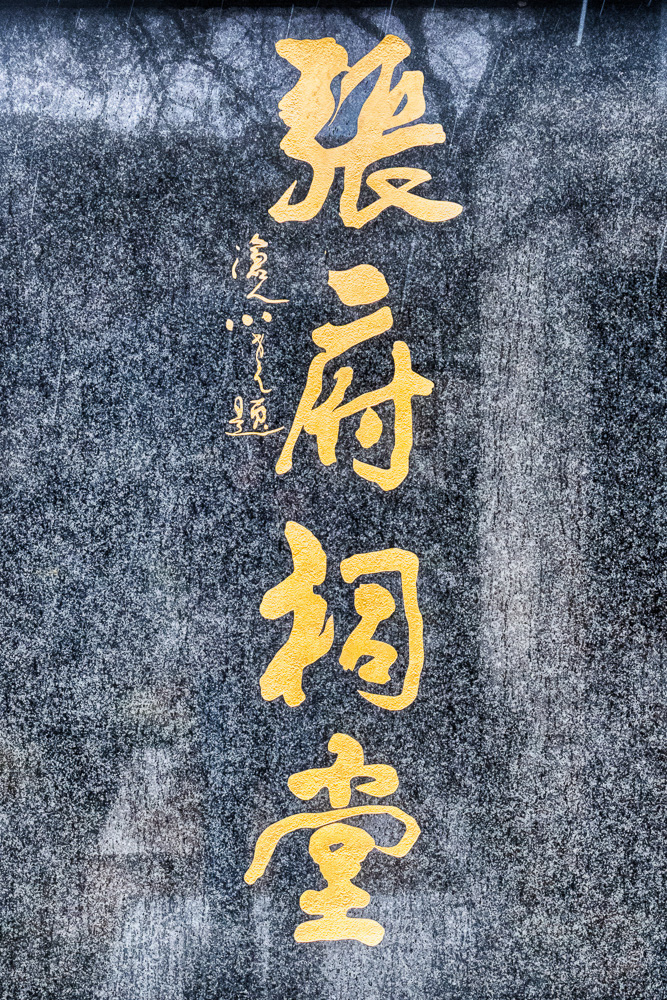 張府祠堂
題